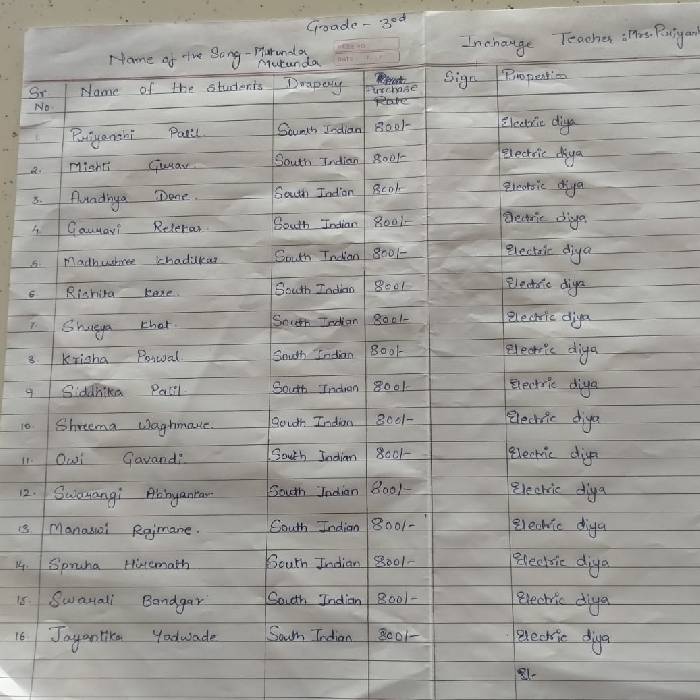 Grade - 3rd
Name of the Song - Mukunda Mukunda
Incharge Teacher : Mrs. Priyan
Sr No. Name of the students Drapery Purchase Rate Sign Properties
1 Priyanshi Patil South Indian 800/- Electric diya
2. Mishti Gurav South Indian 800/- Electric diya
3. Aradhya Dane. South Indian 800/- Electric diya
4. Gauravi Relekar South Indian 800/- Electric diya
5. Madhushree Khadilkar South Indian 800/- Electric diya
6 Rishita Kare South Indian 800/- Electric diya
7. Shreya Khot South Indian 800/- Electric diya
8 Krisha Porwal South Indian 800/- Electric diya
9 Siddhika Patil South Indian 800/- Electric diya
10. Shreema Waghmare. South Indian 800/- Electric diya
11. Owi Gavandi South Indian 800/- Electric diya
12. Swarangi Abhyankar South Indian 800/- Electric diya
13. Manaswi Rajmane. South Indian 800/- Electric diya
14. Spruha Hiremath South Indian 800/- Electric diya
15. Swarali Bandgar South Indian 800/- Electric diya
16. Jayantika Yadwade South Indian 800/- Electric diya